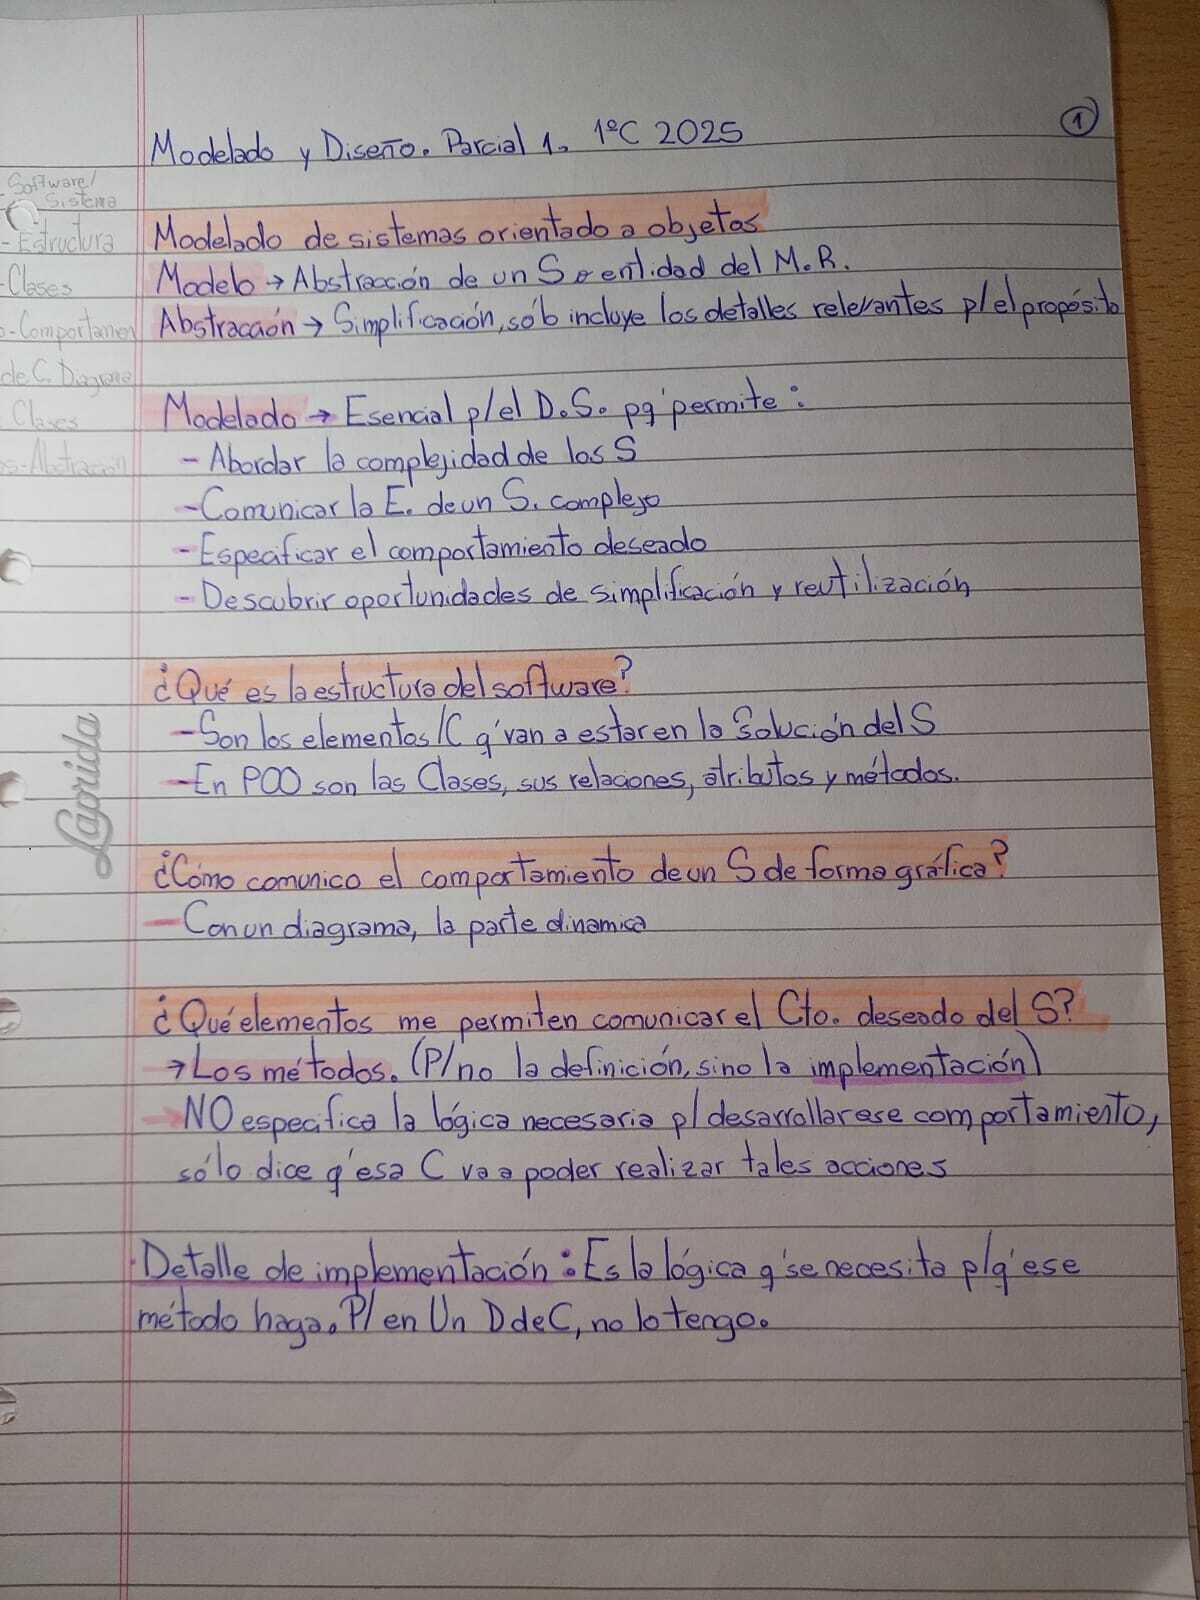 Modelado y Diseño. Parcial 1. 1ºC 2025
1
Software/
Sistema
- Estructura
- Clases
- Comportamen
de C. Diagrama
Clases
- Abstración
Modelado de sistemas orientado a objetos
Modelo → Abstracción de un S o entidad del M.R.
Abstracción → Simplificación, sólo incluye los detalles relevantes p/ el propósito
Modelado → Esencial p/el D.S. pq' permite:
- Abordar la complejidad de los S
- Comunicar la E. de un S. complejo
- Especificar el comportamiento deseado
- Descubrir oportunidades de simplificación y reutilización
¿Qué es la estructura del software?
- Son los elementos/C q' van a estar en la Solución del S
- En POO son las Clases, sus relaciones, atributos y métodos.
Laprida
¿Cómo comunico el comportamiento de un S de forma gráfica?
- Con un diagrama, la parte dinamica
¿Qué elementos me permiten comunicar el Cto. deseado del S?
→ Los métodos. (P/ no la definición, sino la implementación)
→ NO especifica la lógica necesaria p/ desarrollar ese comportamiento,
sólo dice q' esa C va a poder realizar tales acciones
· Detalle de implementación: Es la lógica q' se necesita p/q' ese
método haga. P/ en Un D de C, no lo tengo.